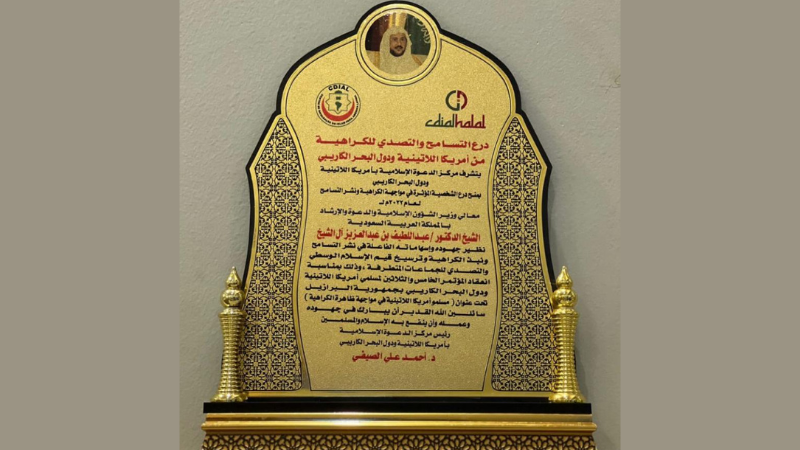 CDIAL
cdialhalal
درع التسامح والتصدي للكراهية
من أمريكا اللاتينية ودول البحر الكاريبي
يتشرف مركز الدعوة الإسلامية بأمريكا اللاتينية
ودول البحر الكاريبي
بمنح درع الشخصية المؤثرة في مواجهة الكراهية ونشر التسامح
لعام ٢٠٢٢م لـ
معالي وزير الشؤون الإسلامية والدعوة والإرشاد
بالمملكة العربية السعودية
الشيخ الدكتور / عبداللطيف بن عبدالعزيز آل الشيخ
نظير جهوده وإسهاماته الفاعلة في نشر التسامح
ونبذ الكراهية وترسيخ قيم الإسلام الوسطي
والتصدي للجماعات المتطرفة ، وذلك بمناسبة
انعقاد المؤتمر الخامس والثلاثين لمسلمي أمريكا اللاتينية
ودول البحر الكاريبي بجمهورية البرازيل
تحت عنوان ( مسلمو أمريكا اللاتينية في مواجهة ظاهرة الكراهية )
سائلين الله القدير أن يبارك في جهوده
وعمله وأن ينفع به الإسلام والمسلمين
رئيس مركز الدعوة الإسلامية
بأمريكا اللاتينية ودول البحر الكاريبي
د. أحمد علي الصيفي